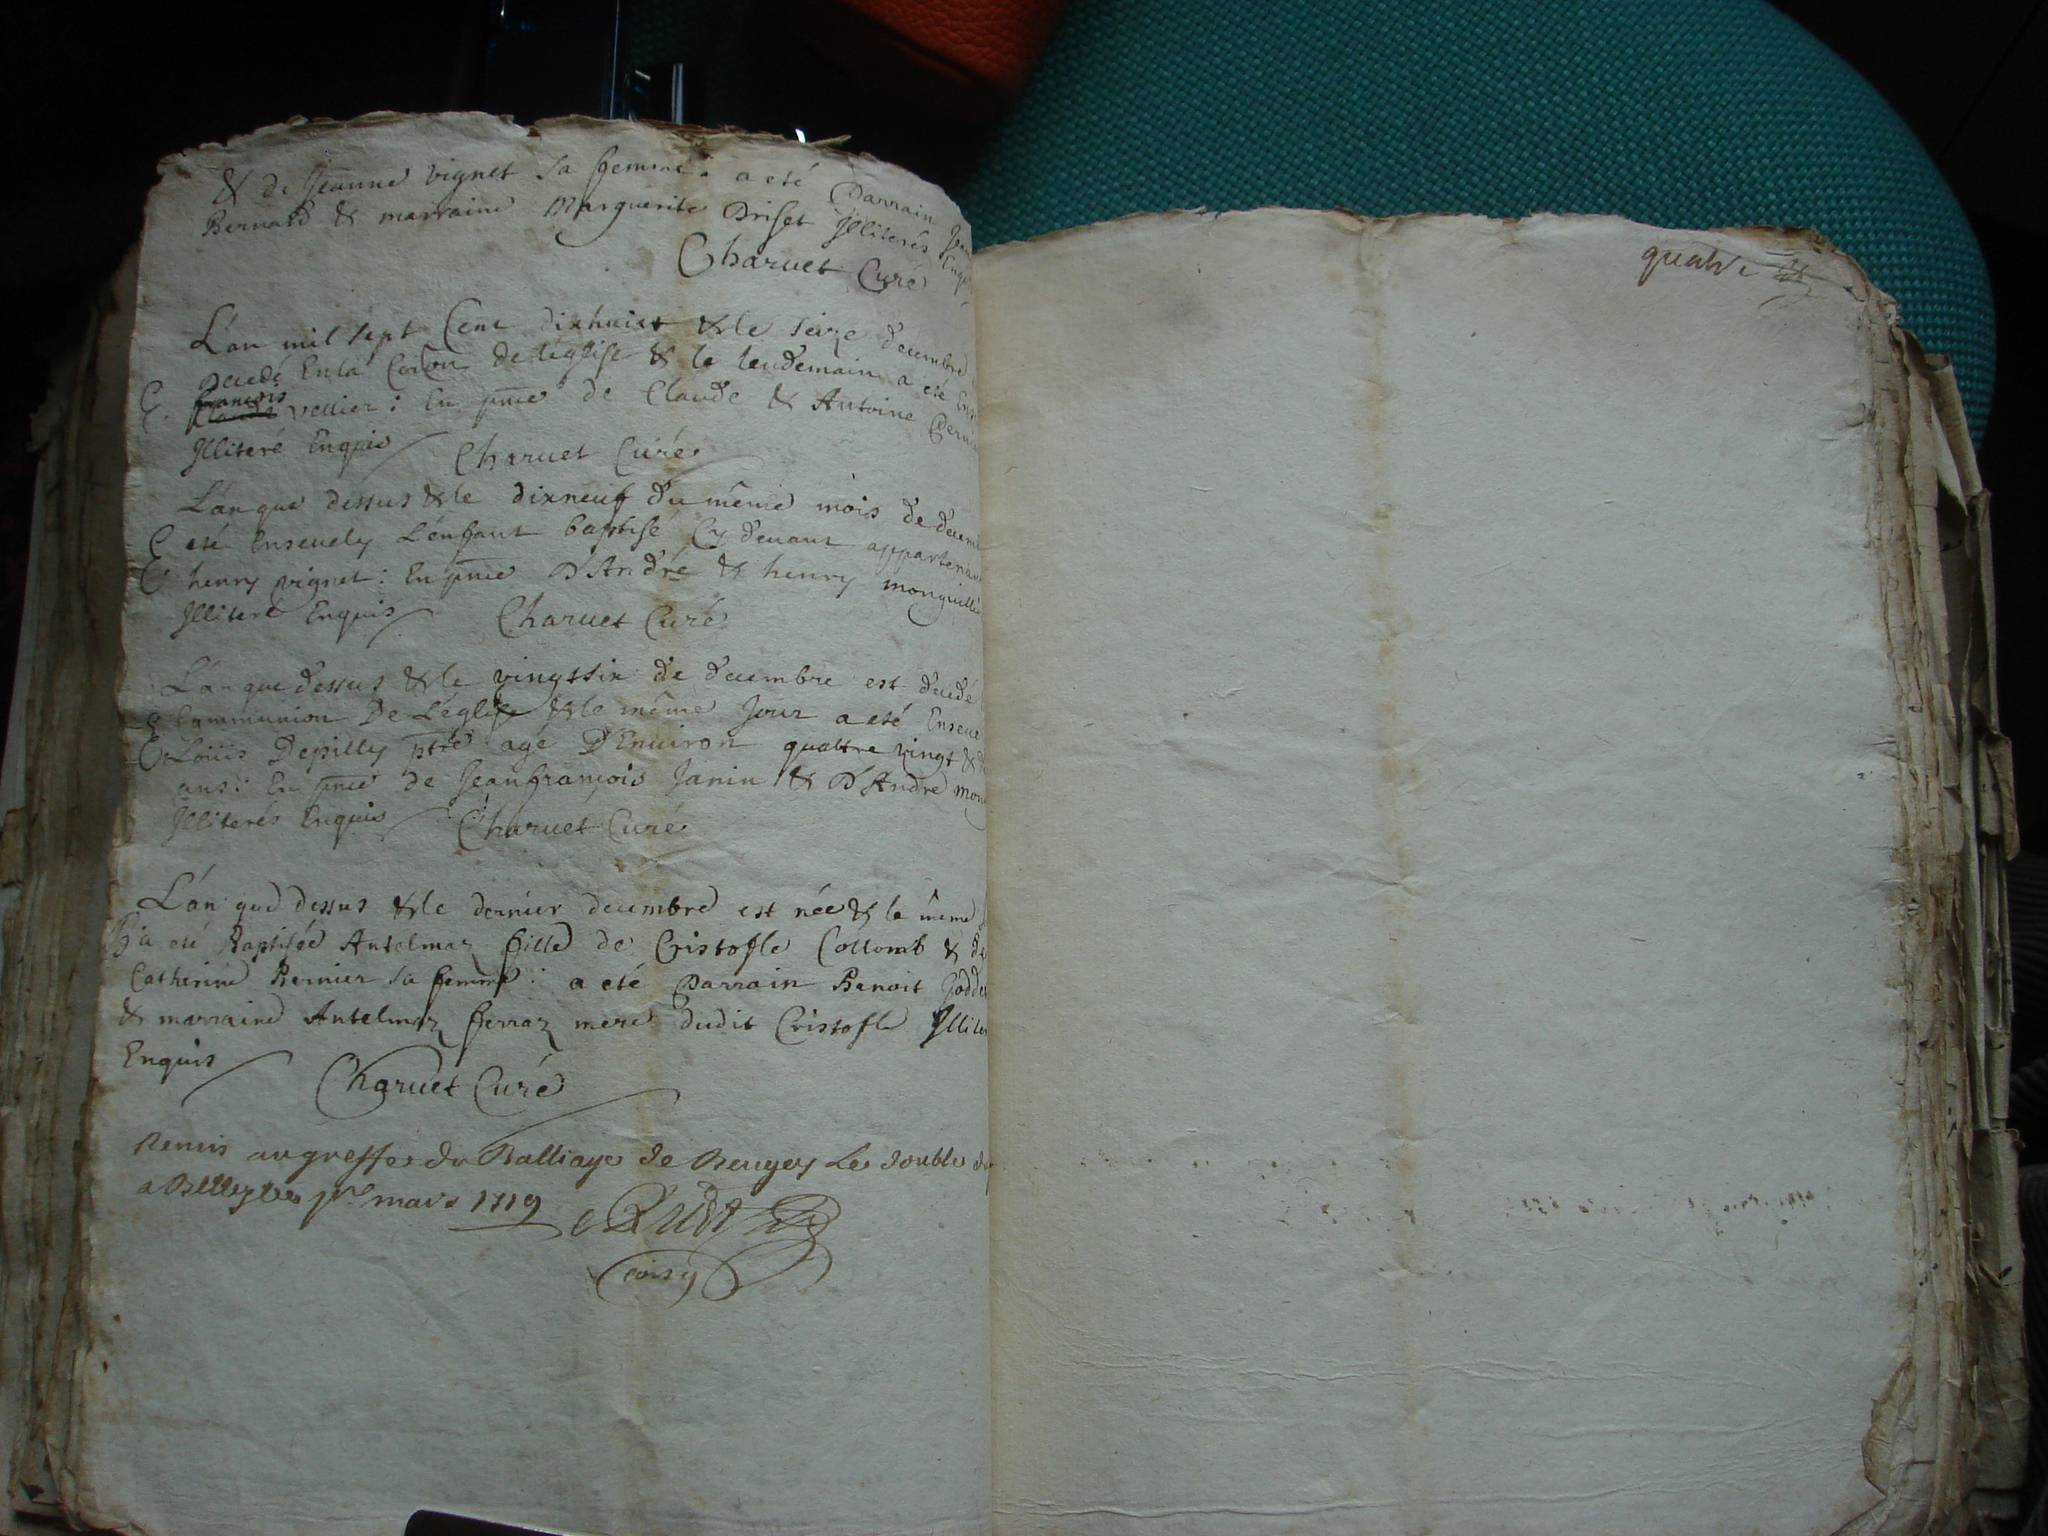 & de Jeanne vignet sa femme: a eté Parrain
Bernard & marraine Marguerite Driset Illiterés
Charuet Curé
L'an mil sept Cent dixhuict & le seize decembre
decedé En la Coion de l'église & le lendemain a eté
E. françois Claude vellier: En pnce de Claude & Antoine
Illiteré Enquis Charuet Curé
L'an que dessus & le dixneuf du même mois de decem
E eté Enseuely L'enfant baptisé Cy deuant appartenan
henry vignet: En pnce D'André & henry monguill
Illiteré Enquis Charuet Curé
L'an que dessus & le vingt six de decembre est decedé
Communion De L'église & le même Jour a eté Enseue
E Louis Depilly ptre agé D'Enuiron quattre vingt &
ans: En pnce de Jean françois Janin & D'André mon
Illiterés Enquis Charuet Curé
L'an que dessus & le dernier decembre est née & le même
B a eté Baptisée Antelmaz fille de Cristofle Collomb & de
Catherine Bernier sa femme: a eté Parrain Benoit
& marraine Antelmaz ferraz mere dudit Cristofle Illite
Enquis Charuet Curé
Remis au greffe du Balliage de Beugey Le double
a Belley le pr mars 1719
quatre